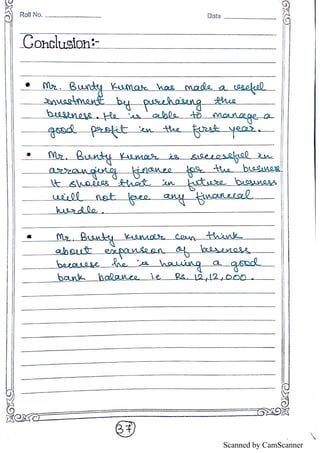 Roll No.
Date
Conclusion:-
• Mr. Bunty Kumar has made a useful
investment by purchasing this
business. He is able to manage a
good profit in the first year.
• Mr. Bunty Kumar is successful in
arranging finance for the business
It shows that in future business
will not face any financial
hurdle.
• Mr. Bunty Kumar can think
about expansion of business
because he is having a good
bank balance ie Rs. 12,12,000.
37
Scanned by CamScanner